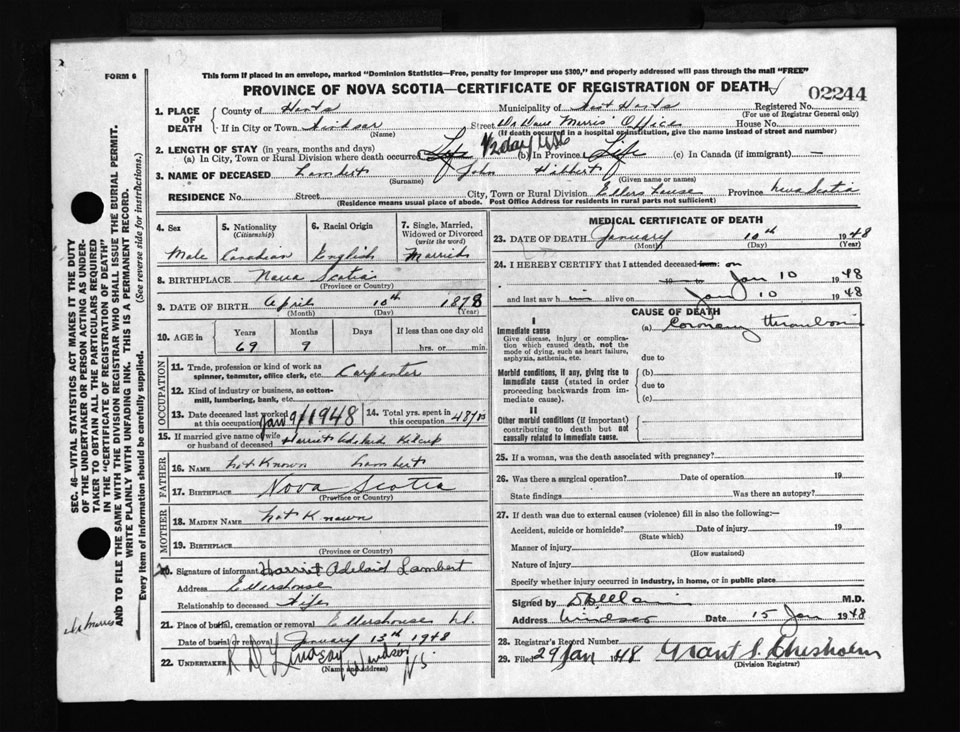 FORM 6
This form if placed in an envelope, marked "Dominion Statistics—Free, penalty for improper use $300," and properly addressed will pass through the mail "FREE"
PROVINCE OF NOVA SCOTIA—CERTIFICATE OF REGISTRATION OF DEATH
02244
1. PLACE OF DEATH
County of Hants Municipality of West Hants Registered No.
(For use of Registrar General only)
If in City or Town Windsor Street Office House No.
(Name) (If death occurred in a hospital or institution, give the name instead of street and number)
2. LENGTH OF STAY (in years, months and days)
(a) In City, Town or Rural Division where death occurred 1/2 day (b) In Province Life (c) In Canada (if immigrant) —
3. NAME OF DECEASED Lambert John Hibbert
(Surname) (Given name or names)
RESIDENCE No. Street City, Town or Rural Division Ellershouse Province Nova Scotia
(Residence means usual place of abode. Post Office Address for residents in rural parts not sufficient)
4. Sex 5. Nationality (Citizenship) 6. Racial Origin 7. Single, Married, Widowed or Divorced (write the word)
Male Canadian English Married
8. BIRTHPLACE Nova Scotia
(Province or Country)
9. DATE OF BIRTH April 10th 1878
(Month) (Day) (Year)
10. AGE in Years Months Days If less than one day old
69 9 hrs. or min.
OCCUPATION
11. Trade, profession or kind of work as spinner, teamster, office clerk, etc. Carpenter
12. Kind of industry or business, as cotton-mill, lumbering, bank, etc.
13. Date deceased last worked at this occupation Jan 9/1948 14. Total yrs. spent in this occupation 48 yrs
15. If married give name of wife or husband of deceased Harriet Adelaid
FATHER
16. NAME Not Known Lambert
17. BIRTHPLACE Nova Scotia
(Province or Country)
MOTHER
18. MAIDEN NAME Not Known
19. BIRTHPLACE
(Province or Country)
20. Signature of informant Harriet Adelaid Lambert
Address Ellershouse
Relationship to deceased Wife
21. Place of burial, cremation or removal Ellershouse
Date of burial or removal January 13th 1948
22. UNDERTAKER R D Lindsay Windsor N.S.
(Name and address)
MEDICAL CERTIFICATE OF DEATH
23. DATE OF DEATH January 10th 1948
(Month) (Day) (Year)
24. I HEREBY CERTIFY that I attended deceased from: on
19 to Jan 10 1948
and last saw him alive on Jan 10 1948
CAUSE OF DEATH
I
Immediate cause (a) Coronary thrombosis
Give disease, injury or complication which caused death, not the mode of dying, such as heart failure, asphyxia, asthenia, etc.
due to
Morbid conditions, if any, giving rise to immediate cause (stated in order proceeding backwards from immediate cause).
(b)
due to
(c)
II
Other morbid conditions (if important) contributing to death but not causally related to immediate cause.
25. If a woman, was the death associated with pregnancy?
26. Was there a surgical operation? Date of operation 19
State findings Was there an autopsy?
27. If death was due to external causes (violence) fill in also the following:—
Accident, suicide or homicide? Date of injury 19
(State which)
Manner of injury
(How sustained)
Nature of injury
Specify whether injury occurred in industry, in home, or in public place
Signed by M.D.
Address Windsor Date 15 Jan 1948
28. Registrar's Record Number
29. Filed 29 Jan 1948 Grant S. Chisholm
(Division Registrar)
SEC. 46—VITAL STATISTICS ACT MAKES IT THE DUTY
OF THE UNDERTAKER OR PERSON ACTING AS UNDER-
TAKER TO OBTAIN ALL THE PARTICULARS REQUIRED
IN THE "CERTIFICATE OF REGISTRATION OF DEATH"
AND TO FILE THE SAME WITH THE DIVISION REGISTRAR WHO SHALL ISSUE THE BURIAL PERMIT.
WRITE PLAINLY WITH UNFADING INK. THIS IS A PERMANENT RECORD.
Every item of information should be carefully supplied. (See reverse side for instructions.)